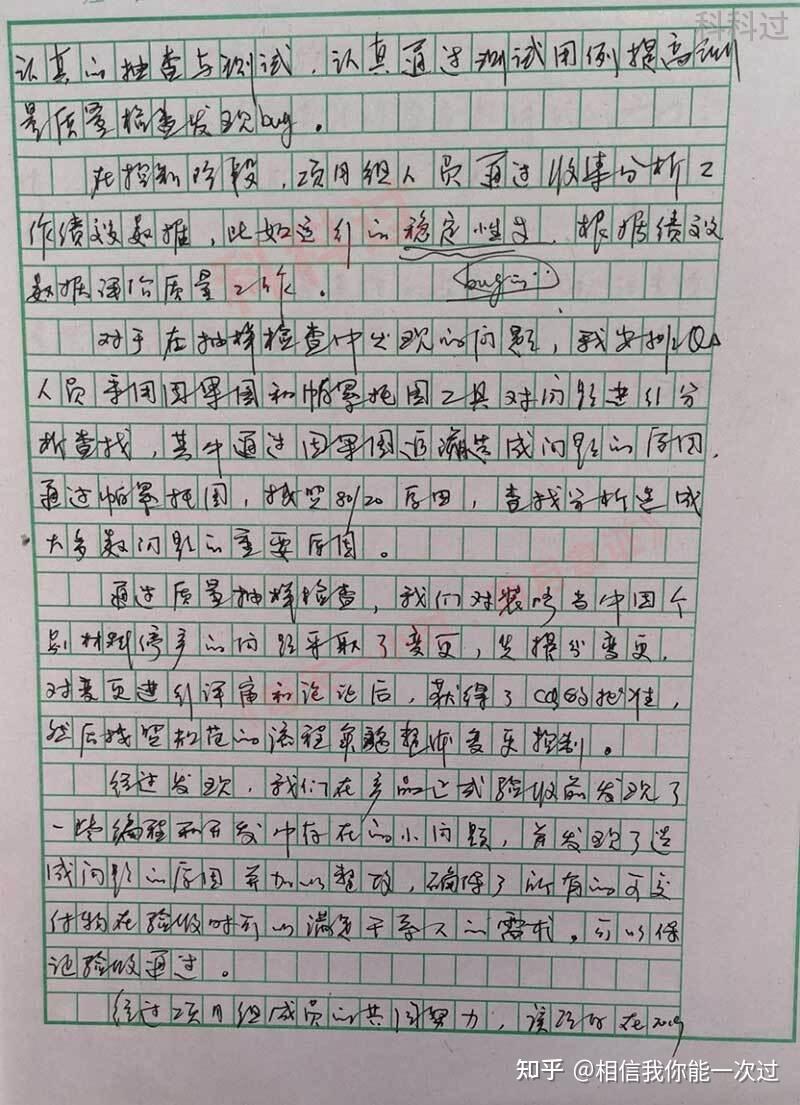 科科过
认真的抽查与测试，认真通过测试用例提高
量质量检查发现bug。
在控制阶段，项目组人员通过收集分析工
作绩效数据，比如运行的稳定性等，根据绩效
数据评价质量工作。
bug
对于在抽样检查中发现的问题，我安排QA
人员采用因果图和帕累托图工具对问题进行分
析查找，其中通过因果图追溯造成问题的原因，
通过帕累托图，按照80/20原因，查找分析造成
大多数问题的重要原因。
通过质量抽样检查，我们对装修当中因个
别材料停产的问题采取了变更，先提出变更，
对变更进行评审和论证后，获得了CCB的批准，
然后按照规范的流程实施整体变更控制。
经过发现，我们在产品正式验收前发现了
一些编程和开发中存在的小问题，并发现了造
成问题的原因并加以整改，确保了所有的可交
付物在验收时可以满足干系人的需求，可以保
证验收通过。
经过项目组成员的共同努力，该项目在2019
知乎 @相信我你能一次过